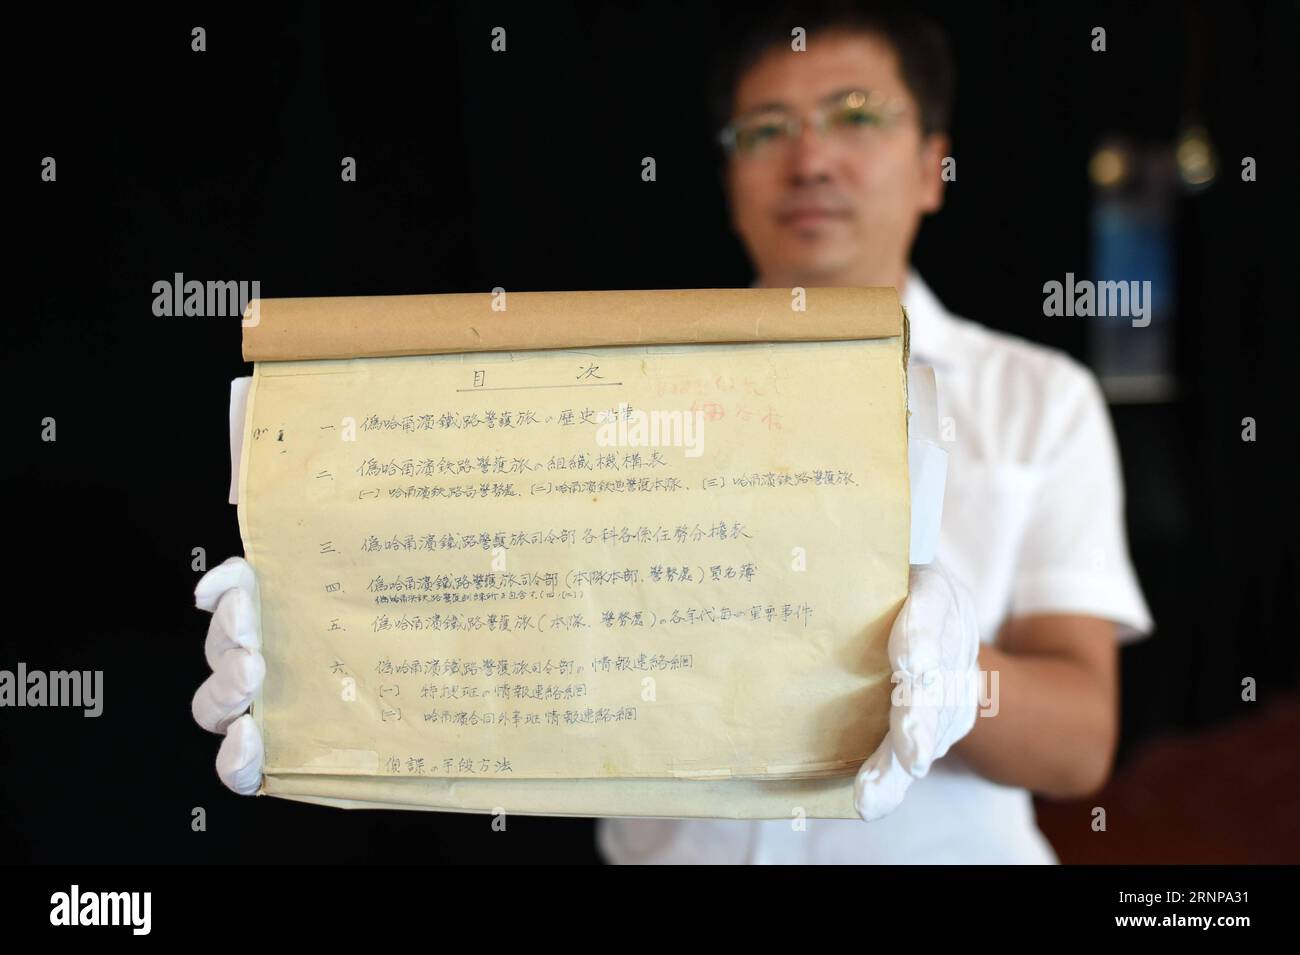 目 次
一 偽哈爾濱鐵路警護旅の歷史沿革
二. 偽哈爾濱鉄路警護旅の組織機構表
(一) 哈爾濱鉄路局警務處、(二)哈爾濱鉄道警護本隊、(三)哈爾濱鉄路警護旅.
三. 偽哈爾濱鐵路警護旅司令部各科各係任務分擔表
四. 偽哈爾濱鐵路警護旅司令部(本隊本部、警務處)員名簿
五. 偽哈爾濱鐵路警護旅(本隊、警務處)の各年代毎の重要事件
六. 偽哈爾濱鐵路警護旅司令部の情報連絡網
(一) 特搜班の情報連絡網
(二) 哈爾濱合同外事班情報連絡網
偵諜の手段方法
alamy
alamy
alamy
Image ID: 2RNPA31
www.alamy.com